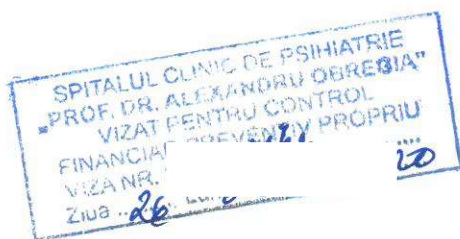 SPITALUL CLINIC DE PSIHIATRIE
"PROF. DR. ALEXANDRU OBREGIA"
VIZAT PENTRU CONTROL
FINANCIAR PREVENTIV PROPRIU
VIZA NR.
Ziua ... 26 20